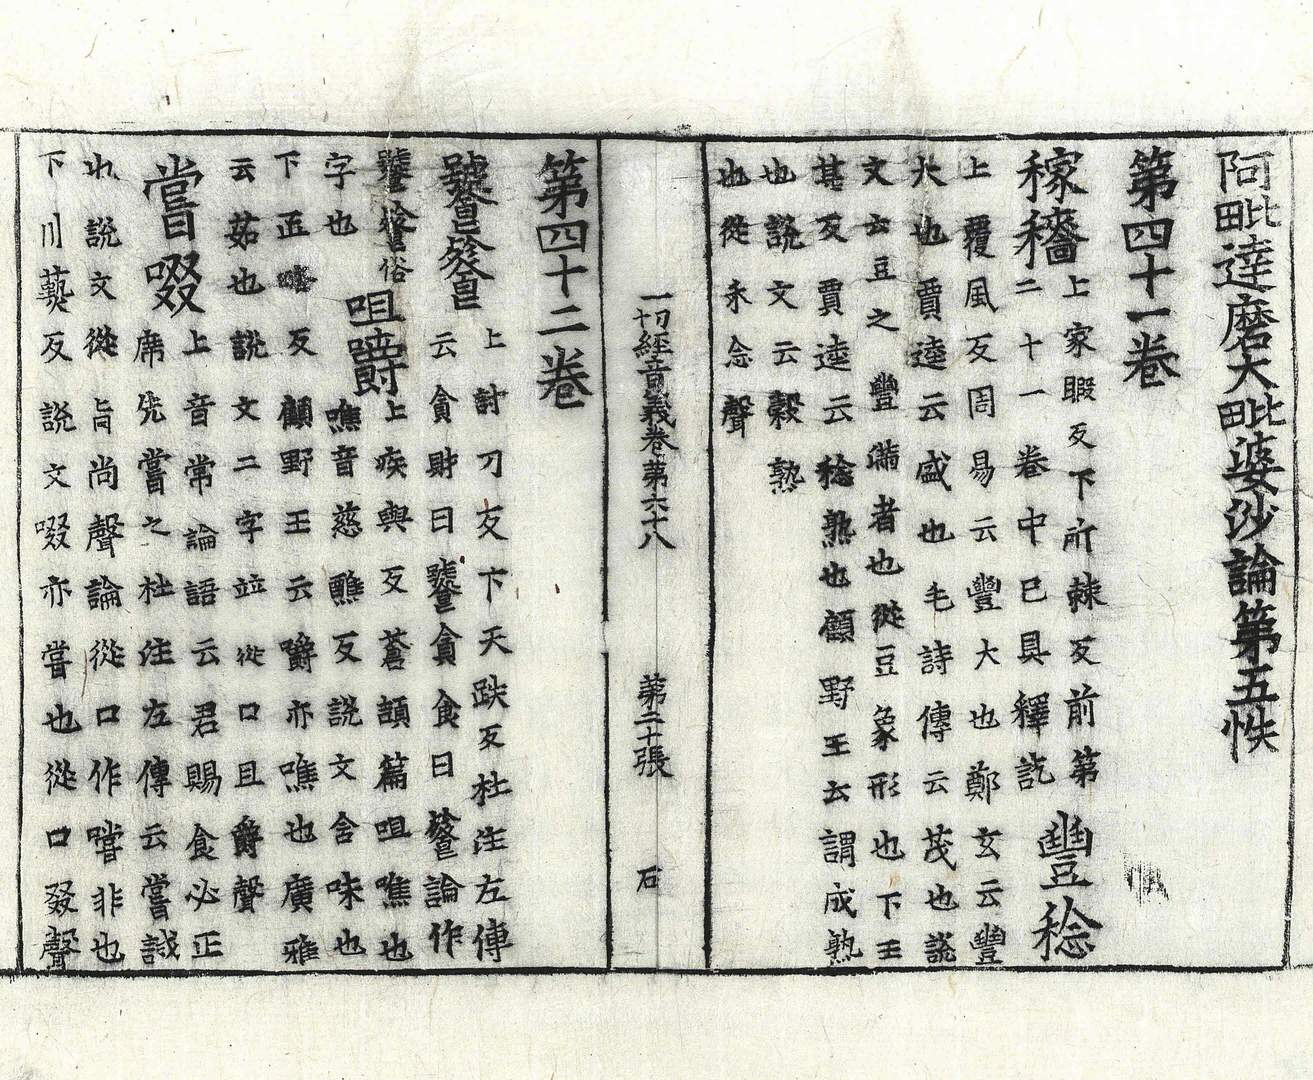 阿毗達磨大毗婆沙論第五帙
第四十一卷
稼穡上家暇反下所棘反前第
二十一卷中已具釋訖豐稔
上覆風反周易云豐大也鄭玄云豐
大也賈逵云盛也毛詩傳云茂也說
文云豆之豐滿者也從豆象形也下壬
甚反賈逵云稔熟也顧野王云謂成熟
也說文云穀熟
也從禾念聲
一切經音義卷第六十八 第二十張 石
第四十二卷
饕餮上討刀反下天跌反杜注左傳
云貪財曰饕貪食曰餮論作
饕餮俗
字也咀嚼上疾與反蒼頡篇咀噍也
噍音慈醮反說文含味也
下匠㗱反顧野王云嚼亦噍也廣雅
云茹也說文二字並從口且爵聲
嘗啜上音常論語云君賜食必正
席先嘗之杜注左傳云嘗試
也說文從旨尚聲論從口作嚐非也
下川爇反說文啜亦嘗也從口叕聲